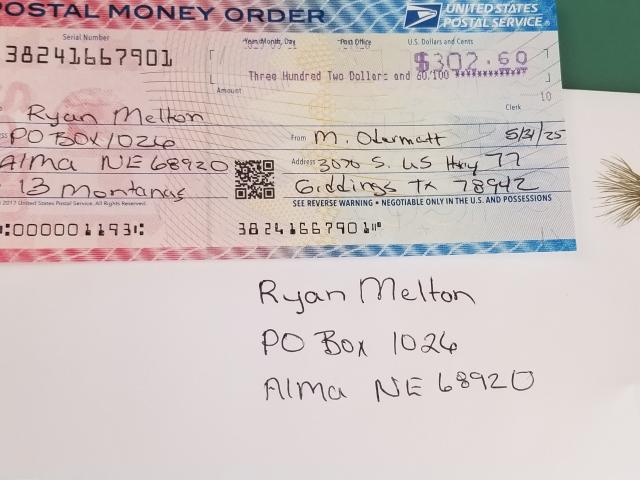 POSTAL MONEY ORDER
UNITED STATES
POSTAL SERVICE®
Serial Number
Year, Month, Day
Post Office
U.S. Dollars and Cents
38241667901
$302.60
Three Hundred Two Dollars and 60/100
Amount
Clerk
10
Ryan Melton
From M. Odermatt 5/31/25
PO BOX 1026
Alma NE 68920
Address 3070 S. US Hwy 77
13 Montanas
Giddings TX 78942
2017 United States Postal Service. All Rights Reserved.
SEE REVERSE WARNING • NEGOTIABLE ONLY IN THE U.S. AND POSSESSIONS
:000001193: 38241667901
Ryan Melton
PO Box 1026
Alma NE 68920